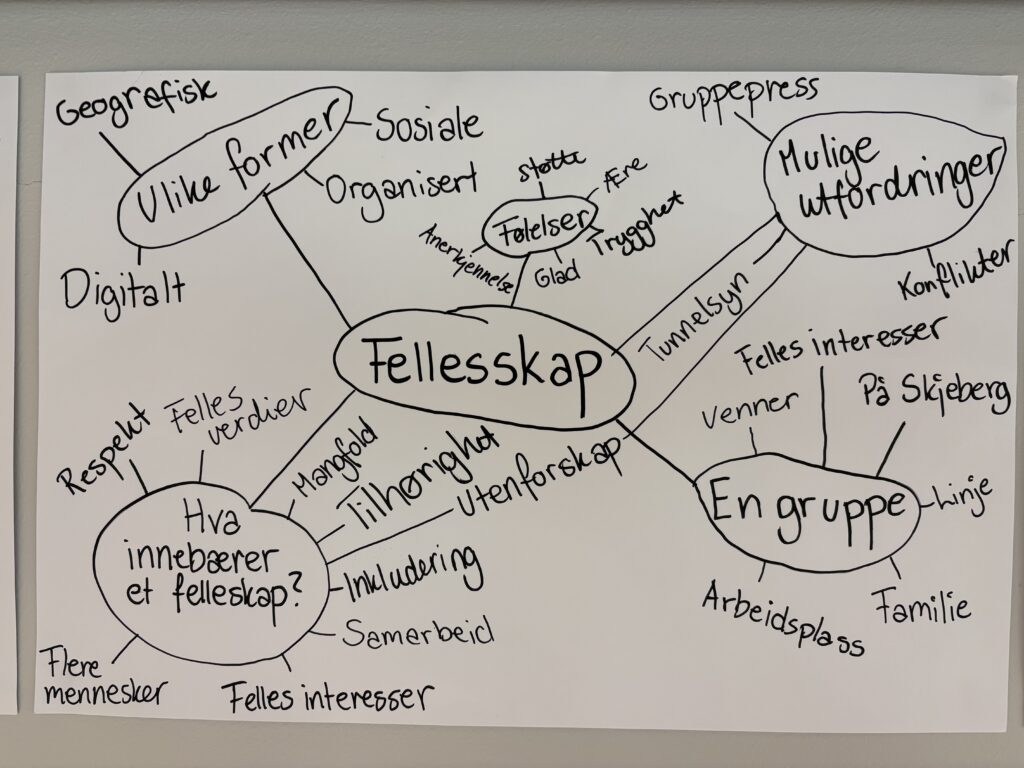 Geografisk
Ulike former
Sosiale
Organisert
Digitalt
støtte
Ære
Følelser
Trygghet
Anerkjennelse
Glad
Gruppepress
Mulige
utfordringer
Konflikter
Tunnelsyn
Fellesskap
Felles interesser
På Skjeberg
venner
En gruppe
Linje
Arbeidsplass
Familie
Respekt
Felles
verdier
Mangfold
Tilhørighet
Utenforskap
Hva
innebærer
et felleskap?
Inkludering
Samarbeid
Flere
mennesker
Felles interesser